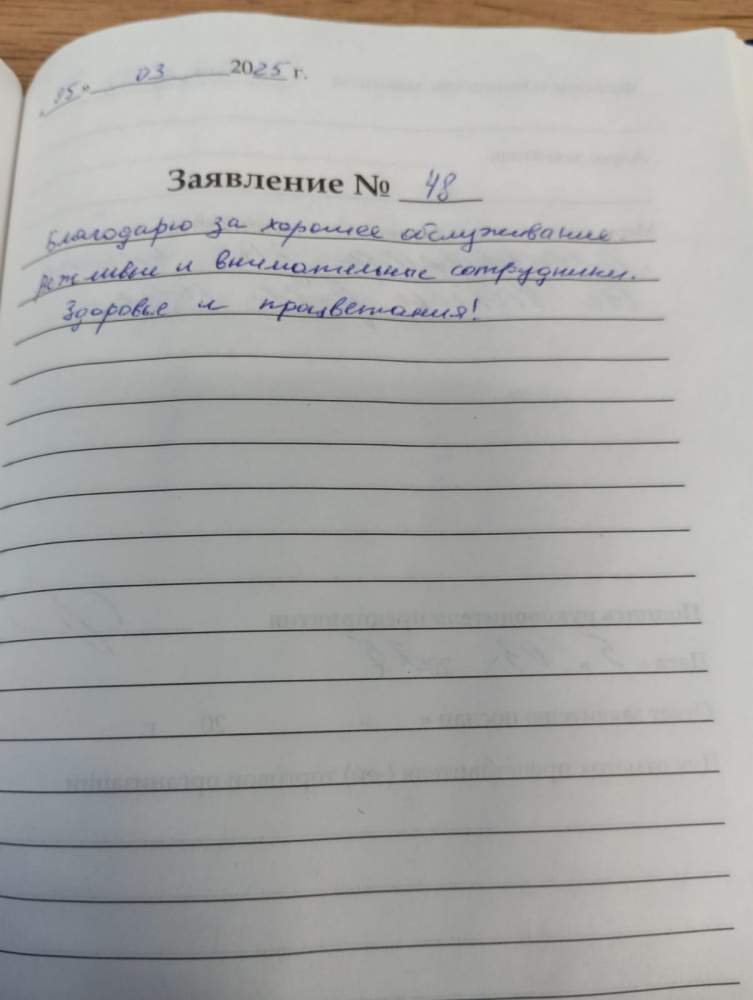 «05» 03 2025 г.
Заявление № 48
Благодарю за хорошее обслуживание.
Вежливые и внимательные сотрудники.
Здоровье и процветания!